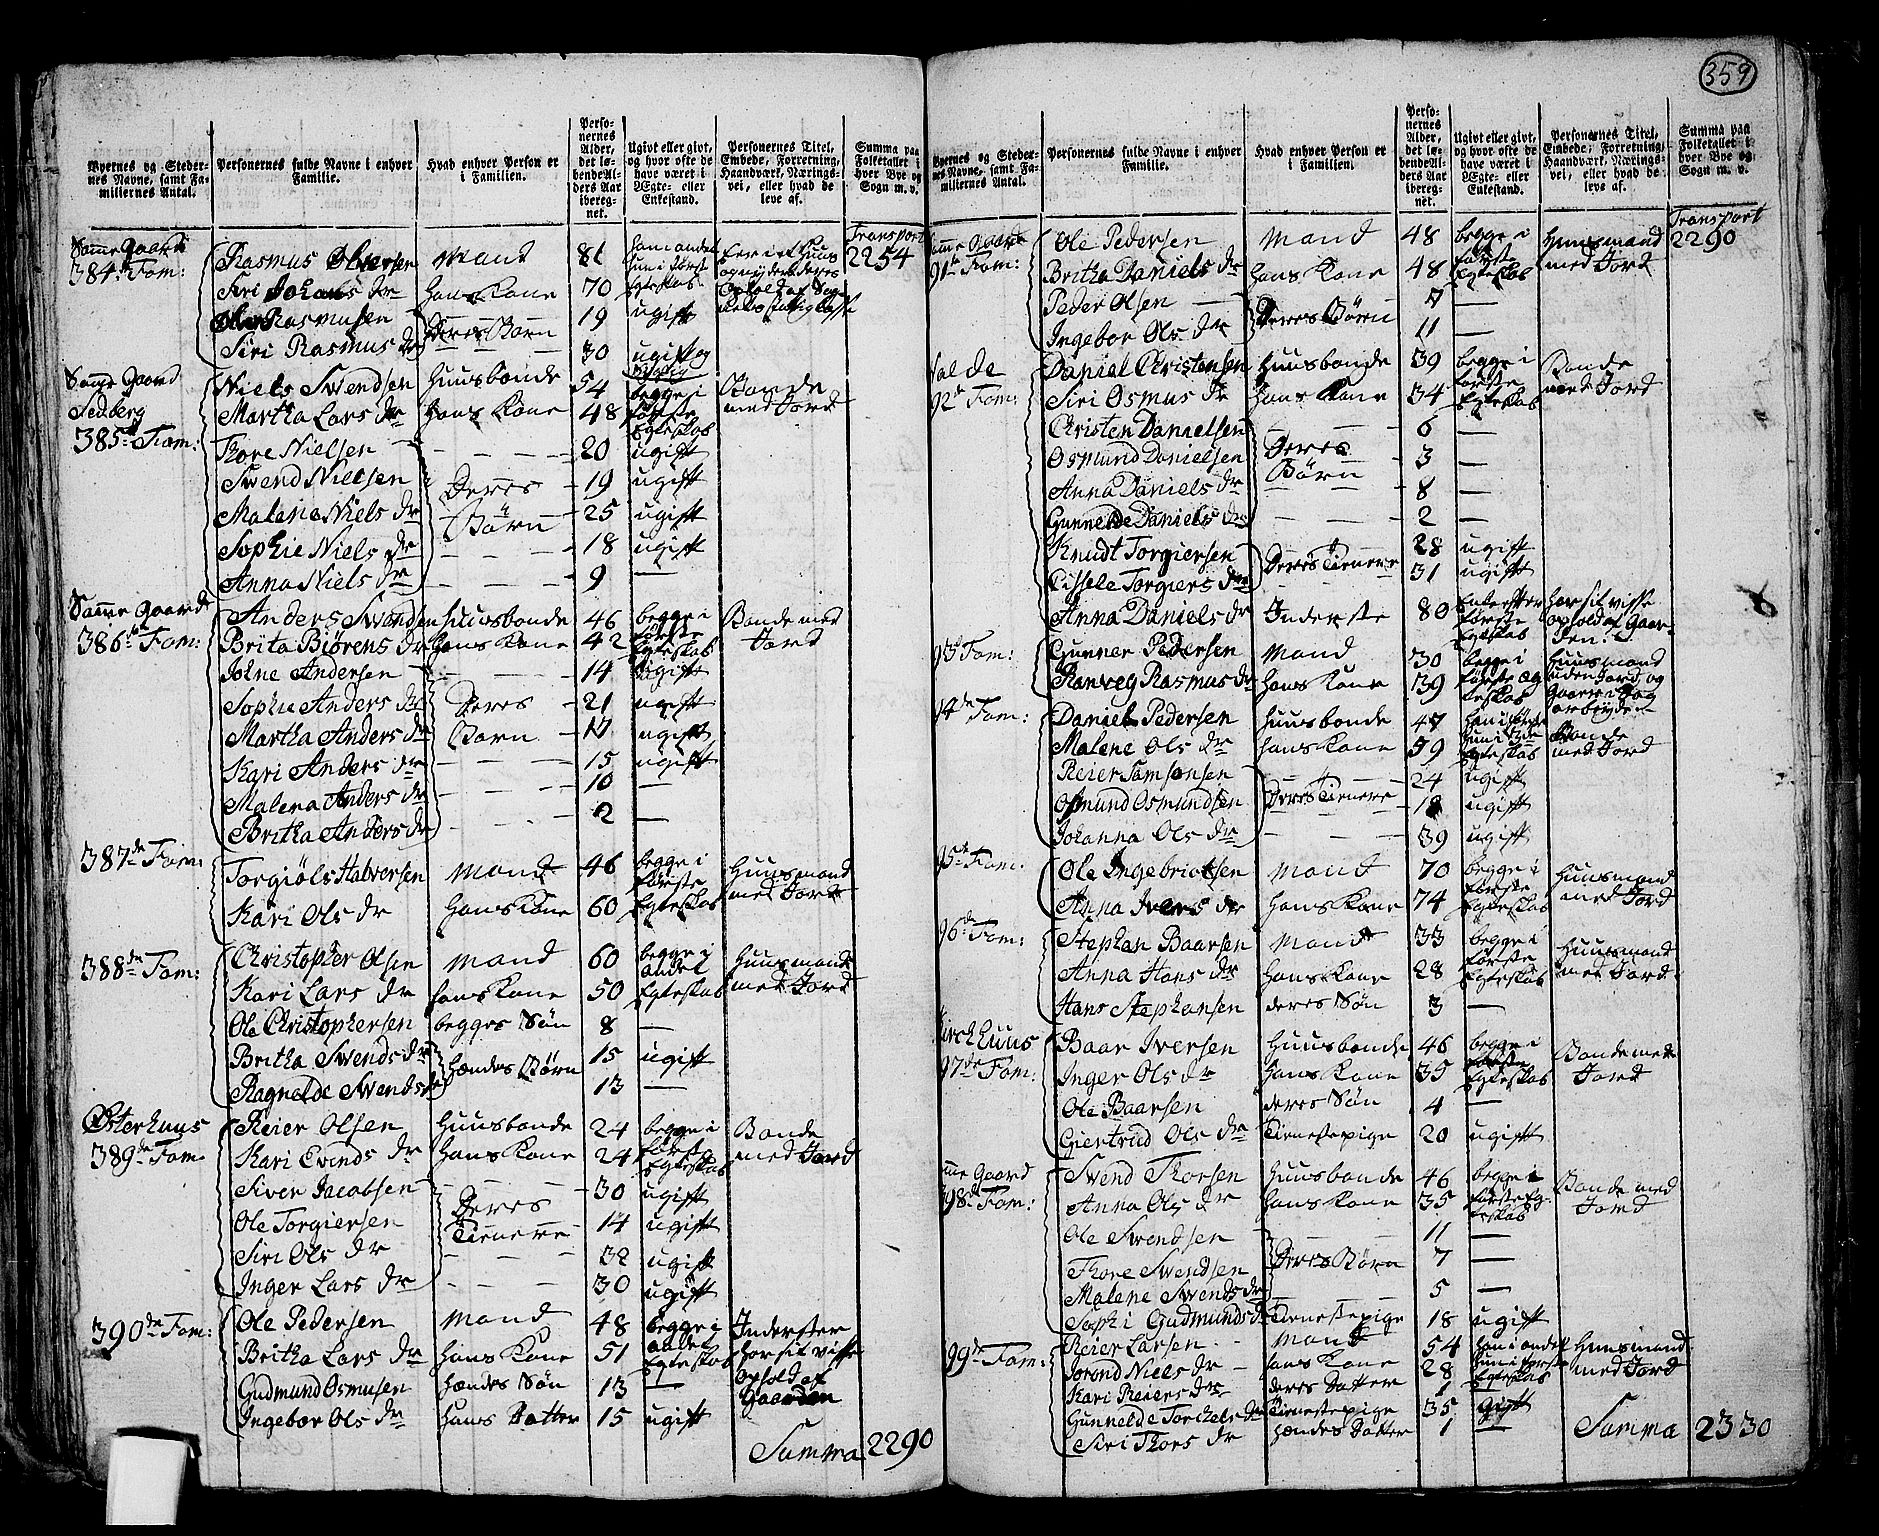 359
Byernes og Steder-
nes Navne, samt Fa-
miliernes Antal.
Personernes fulde Navne i enhver
Familie.
Hvad enhver Person er
i Familien.
Perso-
nernes
Alder,
det lø-
bende Al-
ders Aar
iberegn-
net.
Ugivt eller givt,
og hvor ofte de
have været i
Ægte- eller
Enkestand.
Personernes Titel,
Embede, Forretning,
Haandværk, Nærings-
vei, eller hvad de
leve af.
Summa paa
Folketallet i
hver Bye og
Sogn m. v.
Transport
2254
Samme Gaard
384de Fam:
Rasmus Olversen Mand 81
Siri Johans dr hans Kone 70
Ole Rasmusen 19 ugift
Deres Børn
Siri Rasmus dr 30 ugift og
Samme Gaard
Sedberg
385te Fam:
Niels Swendsen Huusbonde 54 begge i Bonde
Martha Lars dr hans Kone 48 første med Jord
Egteskab
Thore Nielsen 20 ugift
Swend Nielsen 19 ugift
Deres
Malene Niels dr 25 ugift
Børn
Sophie Niels dr 18 ugift
Anna Niels dr 9 —
Samme Gaard
386te Fam:
Anders Swendsen Huusbonde 46 begge i Bonde med
Brita Biørens dr hans Kone 42 første Jord
Egteskab
Johne Andersen 14 ugift
Sophie Anders dr Deres 21 ugift
Martha Anders dr Børn 17 ugift
Kari Anders dr 15 ugift
Malena Anders dr 10 —
Britha Anders dr 2 —
387de Fam:
Torgiøls Halversen Mand 46 begge i Huusmand
Kari Ols dr hans Kone 60 første Egteskab med Jord
388de Fam:
Christopher Olsen Mand 60 begge i Huusmand
andet
Kari Lars dr hans Kone 50 Egteskab med Jord
Ole Christophersen begges Søn 8 —
Britha Swends dr 15 ugift
hændes Børn
Ragnelde Swends dr 13 —
Østerhuus
389de Fam:
Reier Olsen Huusbonde 24 begge i Bonde
Kari Evinds dr hans Kone 24 første Egteskab med Jord
Siver Jacobsen 30 ugift
Deres
Ole Torgiersen 14 ugift
Tienere
Siri Ols dr 32 ugift
Inger Lars dr 30 ugift
390de Fam:
Ole Pedersen Mand 48 begge i Inderster
Britha Lars dr hans Kone 51 andet Egteskab har sit visse
Gudmund Osmusen hændes Søn 13 — Ophold af
Gaarden
Ingebor Ols dr hans Datter 15 ugift
Summa 2290
Byernes og Steder-
nes Navne, samt Fa-
miliernes Antal.
Personernes fulde Navne i enhver
Familie.
Hvad enhver Person er
i Familien.
Perso-
nernes
Alder,
det lø-
bende Al-
ders Aar
iberegn-
net.
Ugivt eller givt,
og hvor ofte de
have været i
Ægte- eller
Enkestand.
Personernes Titel,
Embede, Forretning,
Haandværk, Nærings-
vei, eller hvad de
leve af.
Summa paa
Folketallet i
hver Bye og
Sogn m. v.
Transport
2290
Samme Gaard
91te Fam:
Ole Pedersen Mand 48 begge i Huusmand
Britha Daniels dr hans Kone 48 første Egteskab med Jord
Peder Olsen 7 —
Deres Børn
Ingebor Ols dr 11 —
Valde
92de Fam:
Daniel Christensen Huusbonde 39 begge i Bonde
Siri Osmus dr hans Kone 34 første Egteskab med Jord
Christen Danielsen 6 —
Deres
Osmund Danielsen 3 —
Børn
Anna Daniels dr 8 —
Gunnelde Daniels dr 2 —
Knudt Torgiersen 28 ugift
Deres Tienere
Cissele Torgiers dr 31 ugift
Anna Daniels dr Inderste 80 Enke efter første Egteskab har sit visse ophold af Gaarden
93de Fam:
Gunner Pedersen Mand 30 begge i Huusmand
Ranveg Rasmus dr hans Kone 39 første Egteskab uden Jord og
94de Fam:
Daniel Pedersen Huusbonde 47 Bonde
Malene Ols dr hans Kone 59 Egteskab med Jord
Reier Samsonsen 24 ugift
Osmund Osmundsen Deres Tienere 18 ugift
Johanna Ols dr 39 ugift
95te Fam:
Ole Ingebrictsen Mand 70 begge i Huusmand
Anna Ivers dr hans Kone 74 første Egteskab med Jord
96de Fam:
Stephan Baarsen Mand 33 begge i Huusmand
Anna Hans dr hans Kone 28 første Egteskab med Jord
Hans Stephansen deres Søn 3 —
Kirckhuus
97de Fam:
Baar Iversen Huusbonde 46 begge i Bonde med
Inger Ols dr hans Kone 35 første Egteskab Jord
Ole Baarsen deres Søn 4 —
Giertrud Ols dr Tienestepige 20 ugift
Samme Gaard
98de Fam:
Swend Thorsen Huusbonde 46 begge i Bonde med
Anna Ols dr hans Kone 35 første Egteskab Jord
Ole Swendsen 11 —
Thore Swendsen Deres Børn 7 —
Malene Swends dr 5 —
Sophi Gudmunds dr Tienestepige 18 ugift
99de Fam:
Reier Larsen Mand 54 han i andet Huusmand
Jorond Niels dr hans Kone 28 hun i første Egteskab med Jord
Kari Reiers dr deres Datter 1 —
Gunnelde Torckels dr Tienestepige 35 gift
Siri Thors dr hændes Datter 1 —
Summa 2330